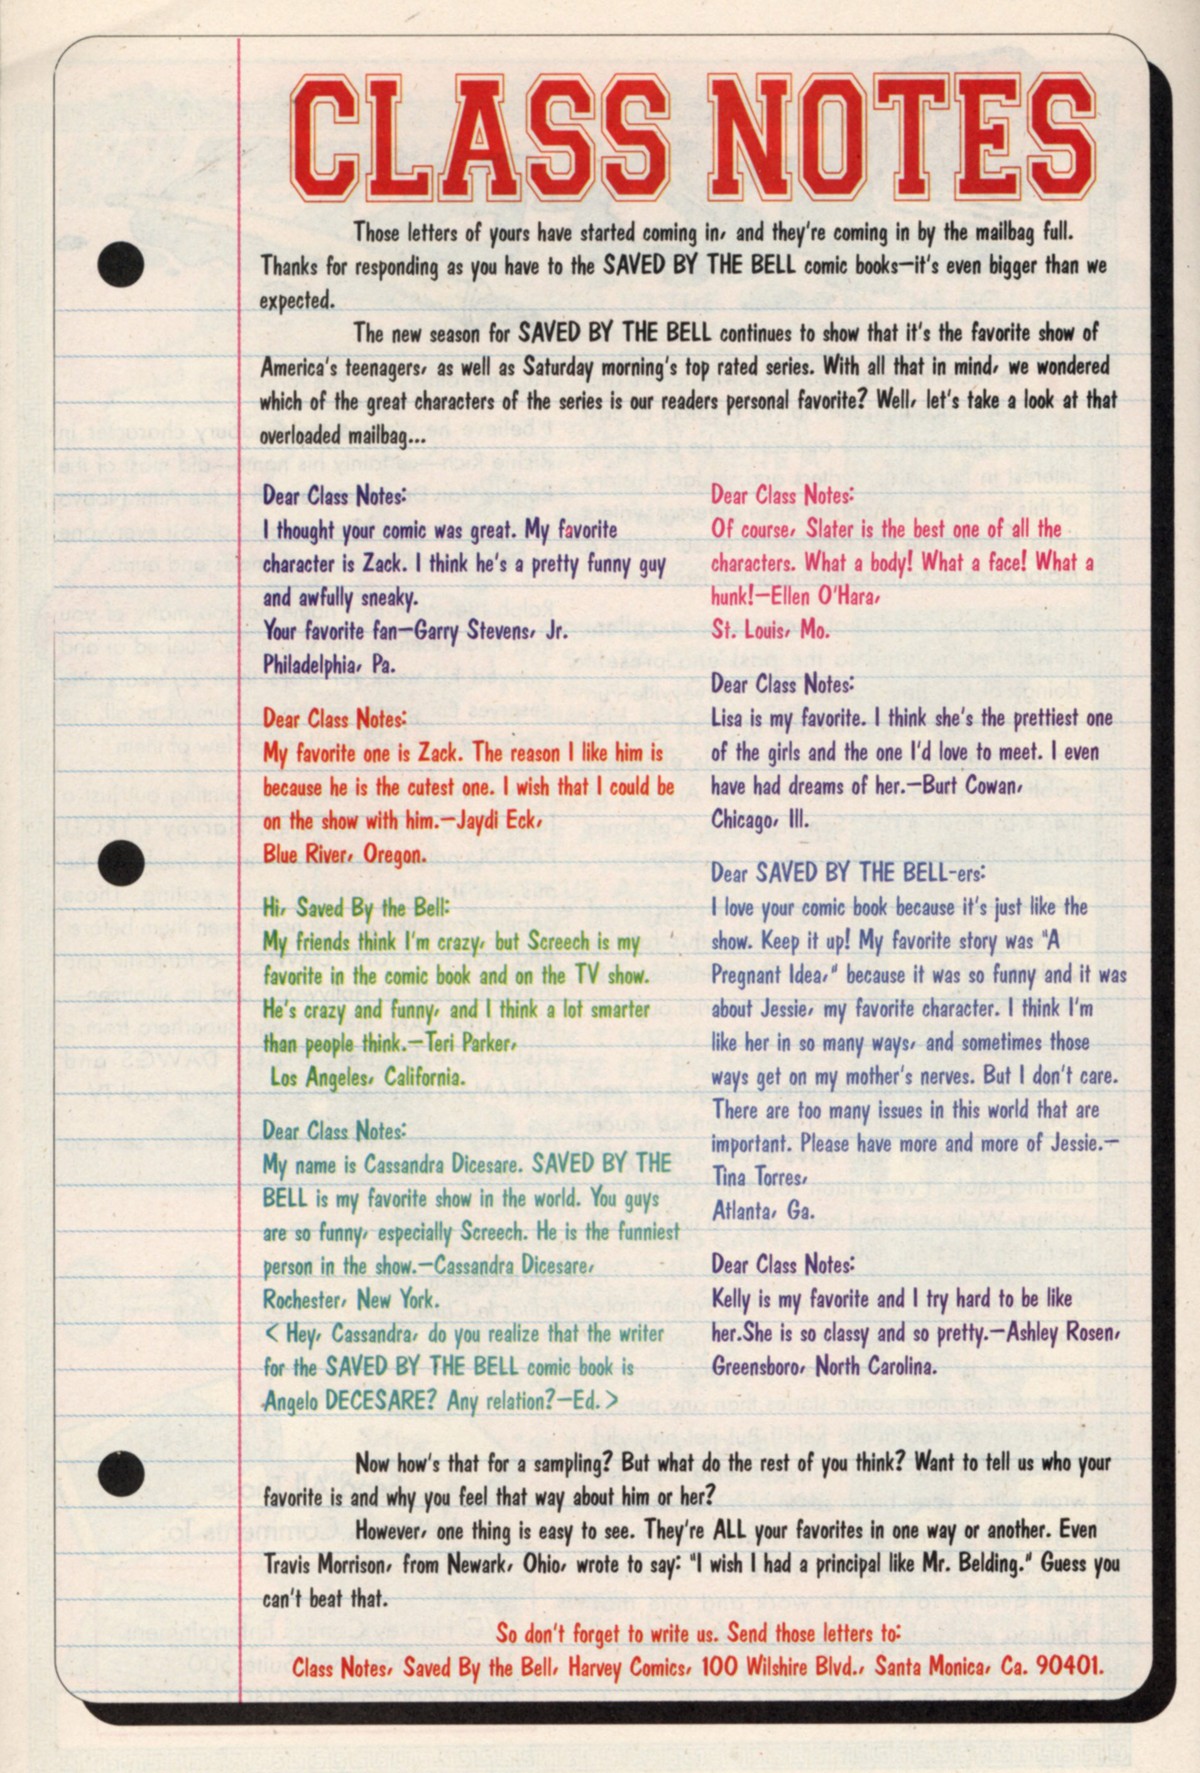 CLASS NOTES
Those letters of yours have started coming in, and they're coming in by the mailbag full.
Thanks for responding as you have to the SAVED BY THE BELL comic books—it's even bigger than we
expected.
The new season for SAVED BY THE BELL continues to show that it's the favorite show of
America's teenagers, as well as Saturday morning's top rated series. With all that in mind, we wondered
which of the great characters of the series is our readers personal favorite? Well, let's take a look at that
overloaded mailbag...
Dear Class Notes:
I thought your comic was great. My favorite
character is Zack. I think he's a pretty funny guy
and awfully sneaky.
Your favorite fan—Garry Stevens, Jr.
Philadelphia, Pa.
Dear Class Notes:
My favorite one is Zack. The reason I like him is
because he is the cutest one. I wish that I could be
on the show with him.—Jaydi Eck,
Blue River, Oregon.
Hi, Saved By the Bell:
My friends think I'm crazy, but Screech is my
favorite in the comic book and on the TV show.
He's crazy and funny, and I think a lot smarter
than people think.—Teri Parker,
Los Angeles, California.
Dear Class Notes:
My name is Cassandra Dicesare. SAVED BY THE
BELL is my favorite show in the world. You guys
are so funny, especially Screech. He is the funniest
person in the show.—Cassandra Dicesare,
Rochester, New York.
< Hey, Cassandra, do you realize that the writer
for the SAVED BY THE BELL comic book is
Angelo DECESARE? Any relation?—Ed. >
Dear Class Notes:
Of course, Slater is the best one of all the
characters. What a body! What a face! What a
hunk!—Ellen O'Hara,
St. Louis, Mo.
Dear Class Notes:
Lisa is my favorite. I think she's the prettiest one
of the girls and the one I'd love to meet. I even
have had dreams of her.—Burt Cowan,
Chicago, Ill.
Dear SAVED BY THE BELL-ers:
I love your comic book because it's just like the
show. Keep it up! My favorite story was "A
Pregnant Idea," because it was so funny and it was
about Jessie, my favorite character. I think I'm
like her in so many ways, and sometimes those
ways get on my mother's nerves. But I don't care.
There are too many issues in this world that are
important. Please have more and more of Jessie.—
Tina Torres,
Atlanta, Ga.
Dear Class Notes:
Kelly is my favorite and I try hard to be like
her.She is so classy and so pretty.—Ashley Rosen,
Greensboro, North Carolina.
Now how's that for a sampling? But what do the rest of you think? Want to tell us who your
favorite is and why you feel that way about him or her?
However, one thing is easy to see. They're ALL your favorites in one way or another. Even
Travis Morrison, from Newark, Ohio, wrote to say: "I wish I had a principal like Mr. Belding." Guess you
can't beat that.
So don't forget to write us. Send those letters to:
Class Notes, Saved By the Bell, Harvey Comics, 100 Wilshire Blvd., Santa Monica, Ca. 90401.